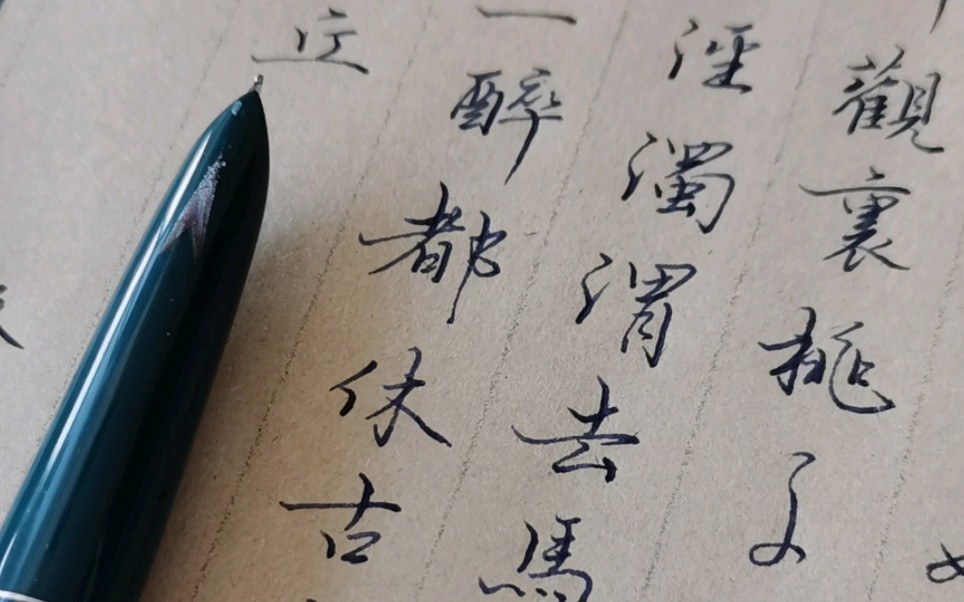 觀裏桃
涇濁渭去馬
一醉都休古